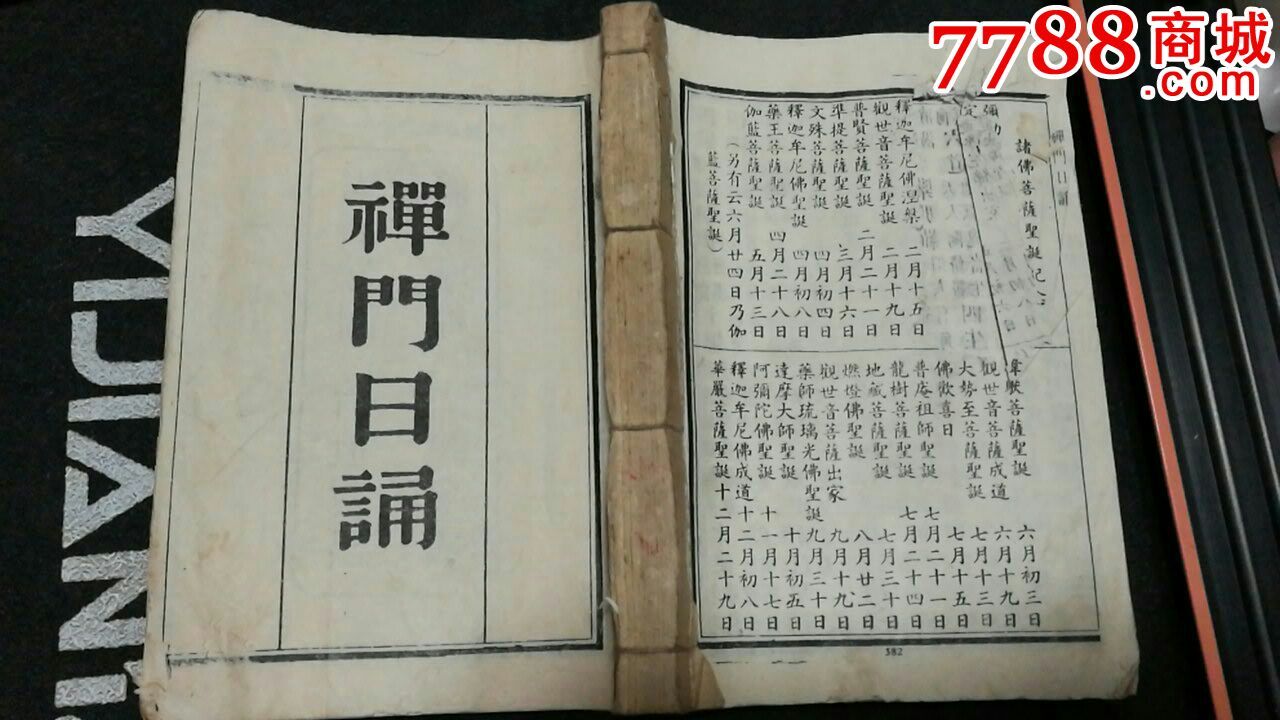 7788商城
.com
YIJIAN
禪門日誦
禪門日誦
諸佛菩薩聖誕紀念
彌勒
定
釋迦牟尼佛涅槃 二月十五日
觀世音菩薩聖誕 二月十九日
普賢菩薩聖誕 二月二十一日
準提菩薩聖誕 三月十六日
文殊菩薩聖誕 四月初四日
釋迦牟尼佛聖誕 四月初八日
藥王菩薩聖誕 四月二十八日
伽藍菩薩聖誕 五月十三日
(另有云六月廿四日乃伽
藍菩薩聖誕)
韋馱菩薩聖誕 六月初三日
觀世音菩薩成道 六月十九日
大勢至菩薩聖誕 七月十三日
佛歡喜日 七月十五日
普庵祖師聖誕 七月二十一日
龍樹菩薩聖誕 七月二十四日
地藏菩薩聖誕 七月三十日
燃燈佛聖誕 八月廿二日
觀世音菩薩出家 九月十九日
藥師琉璃光佛聖誕 九月三十日
達摩大師聖誕 十月初五日
阿彌陀佛聖誕 十一月十七日
釋迦牟尼佛成道 十二月初八日
華嚴菩薩聖誕 十二月二十九日
382